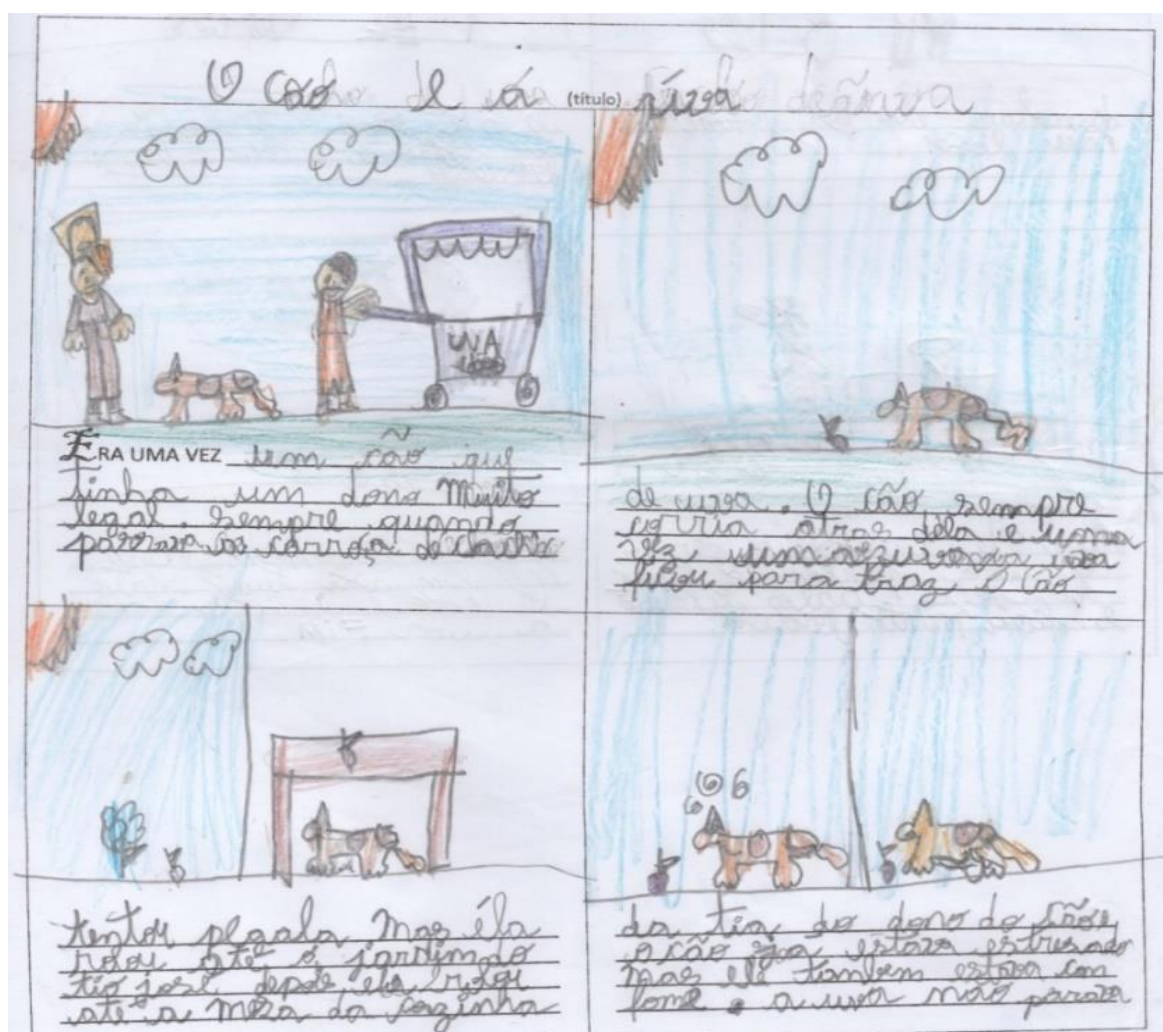 O cão e a (título) uva
UVA
ERA UMA VEZ um cão que
tinha um dono muito
legal. sempre quando
pasava as carroça de
de uva. O cão sempre
corria atras dela e uma
vez uma uva
ficou para traz o cão
tentou pegala mas éla
rolou até o jardim do
tio josé depois ela rolou
até a mesa da cozinha
da tia do dono do cão e
o cão ja estava estresado
mas ele tanbem estava com
fome. a uva não parava